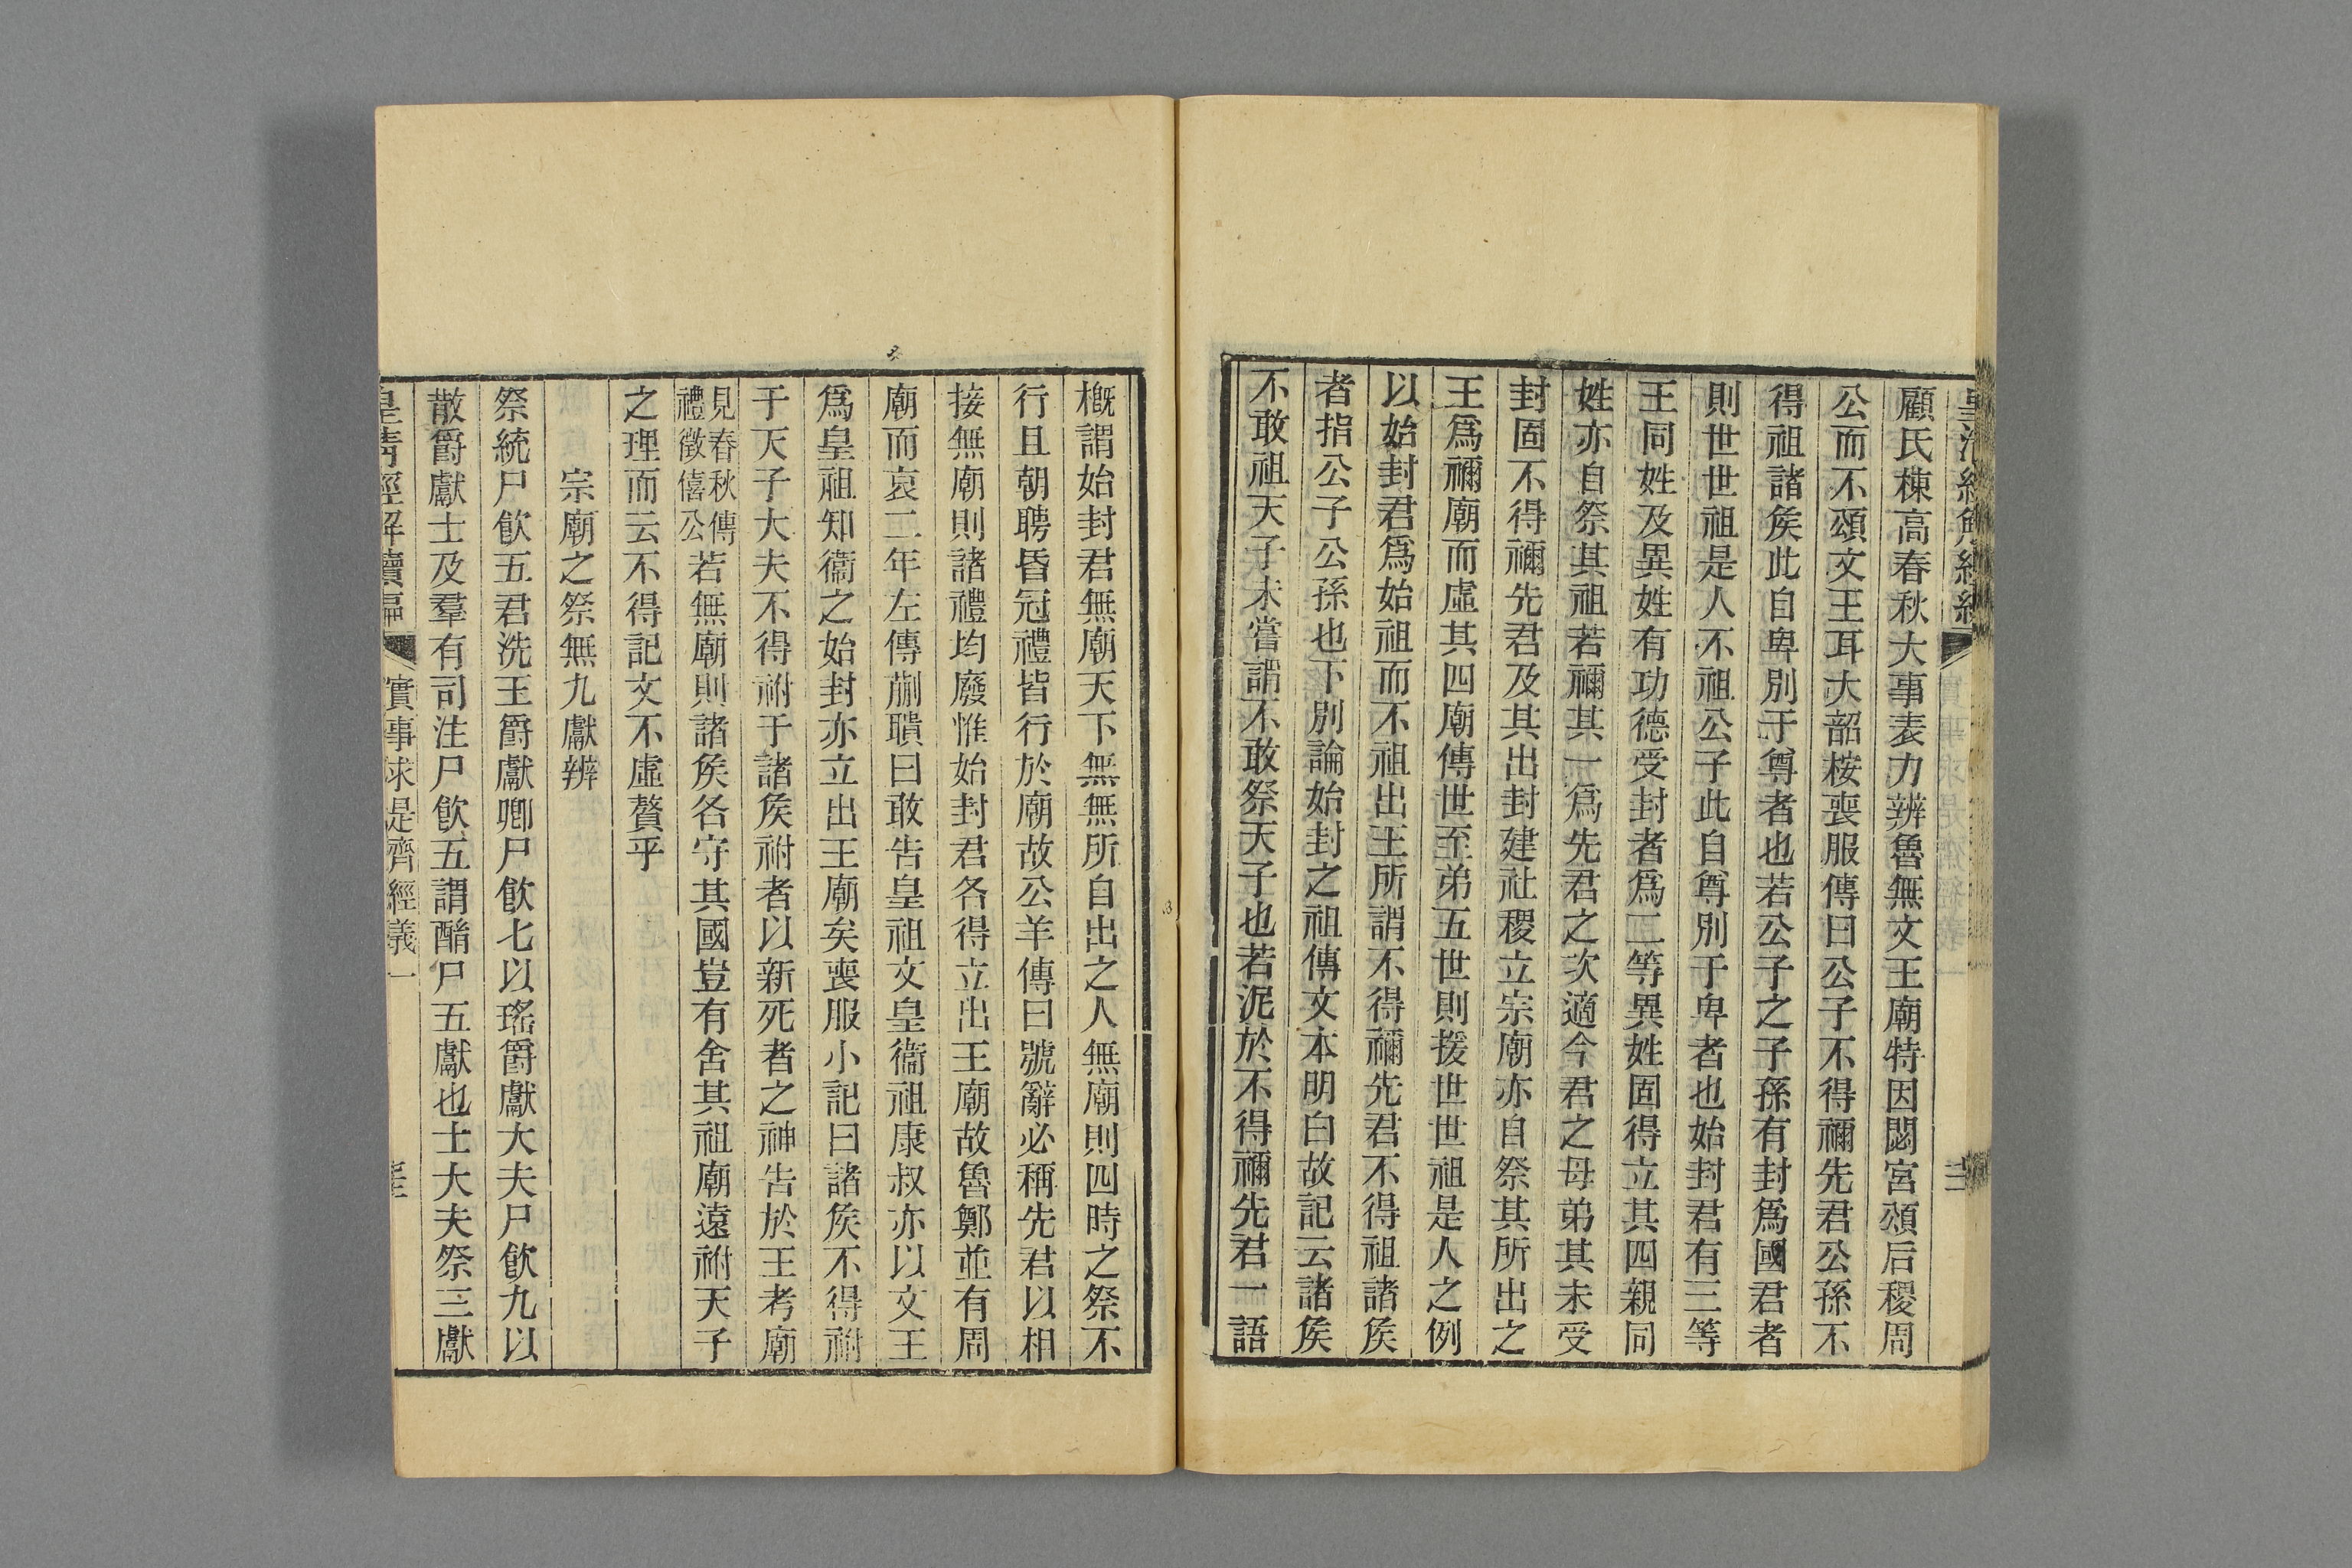 顧氏棟高春秋大事表力辨魯無文王廟特因閟宮頌后稷周
公而不頌文王耳大韶桉喪服傳曰公子不得禰先君公孫不
得祖諸矦此自卑別于尊者也若公子之子孫有封爲國君者
則世世祖是人不祖公子此自尊別于卑者也始封君有三等
王同姓及異姓有功德受封者爲二等異姓固得立其四親同
姓亦自祭其祖若禰其一爲先君之次適今君之母弟其未受
封固不得禰先君及其出封建社稷立宗廟亦自祭其所出之
王爲禰廟而虛其四廟傳世至弟五世則援世世祖是人之例
以始封君爲始祖而不祖出王所謂不得禰先君不得祖諸矦
者指公子公孫也下別論始封之祖傳文本明白故記云諸矦
不敢祖天子未嘗謂不敢祭天子也若泥於不得禰先君一語
概謂始封君無廟天下無無所自出之人無廟則四時之祭不
行且朝聘昏冠禮皆行於廟故公羊傳曰號辭必稱先君以相
接無廟則諸禮均廢惟始封君各得立出王廟故魯鄭並有周
廟而哀二年左傳蒯聵曰敢告皇祖文皇衞祖康叔亦以文王
爲皇祖知衞之始封亦立出王廟矣喪服小記曰諸矦不得祔
于天子大夫不得祔于諸矦祔者以新死者之神告於王考廟
見春秋傳禮徵僖公若無廟則諸矦各守其國豈有舍其祖廟遠祔天子
之理而云不得記文不虛贅乎
宗廟之祭無九獻辨
祭統尸飮五君洗玉爵獻卿尸飮七以瑤爵獻大夫尸飮九以
散爵獻士及羣有司注尸飮五謂酳尸五獻也士大夫祭三獻
皇淸經解續編 實事求是齋經義一